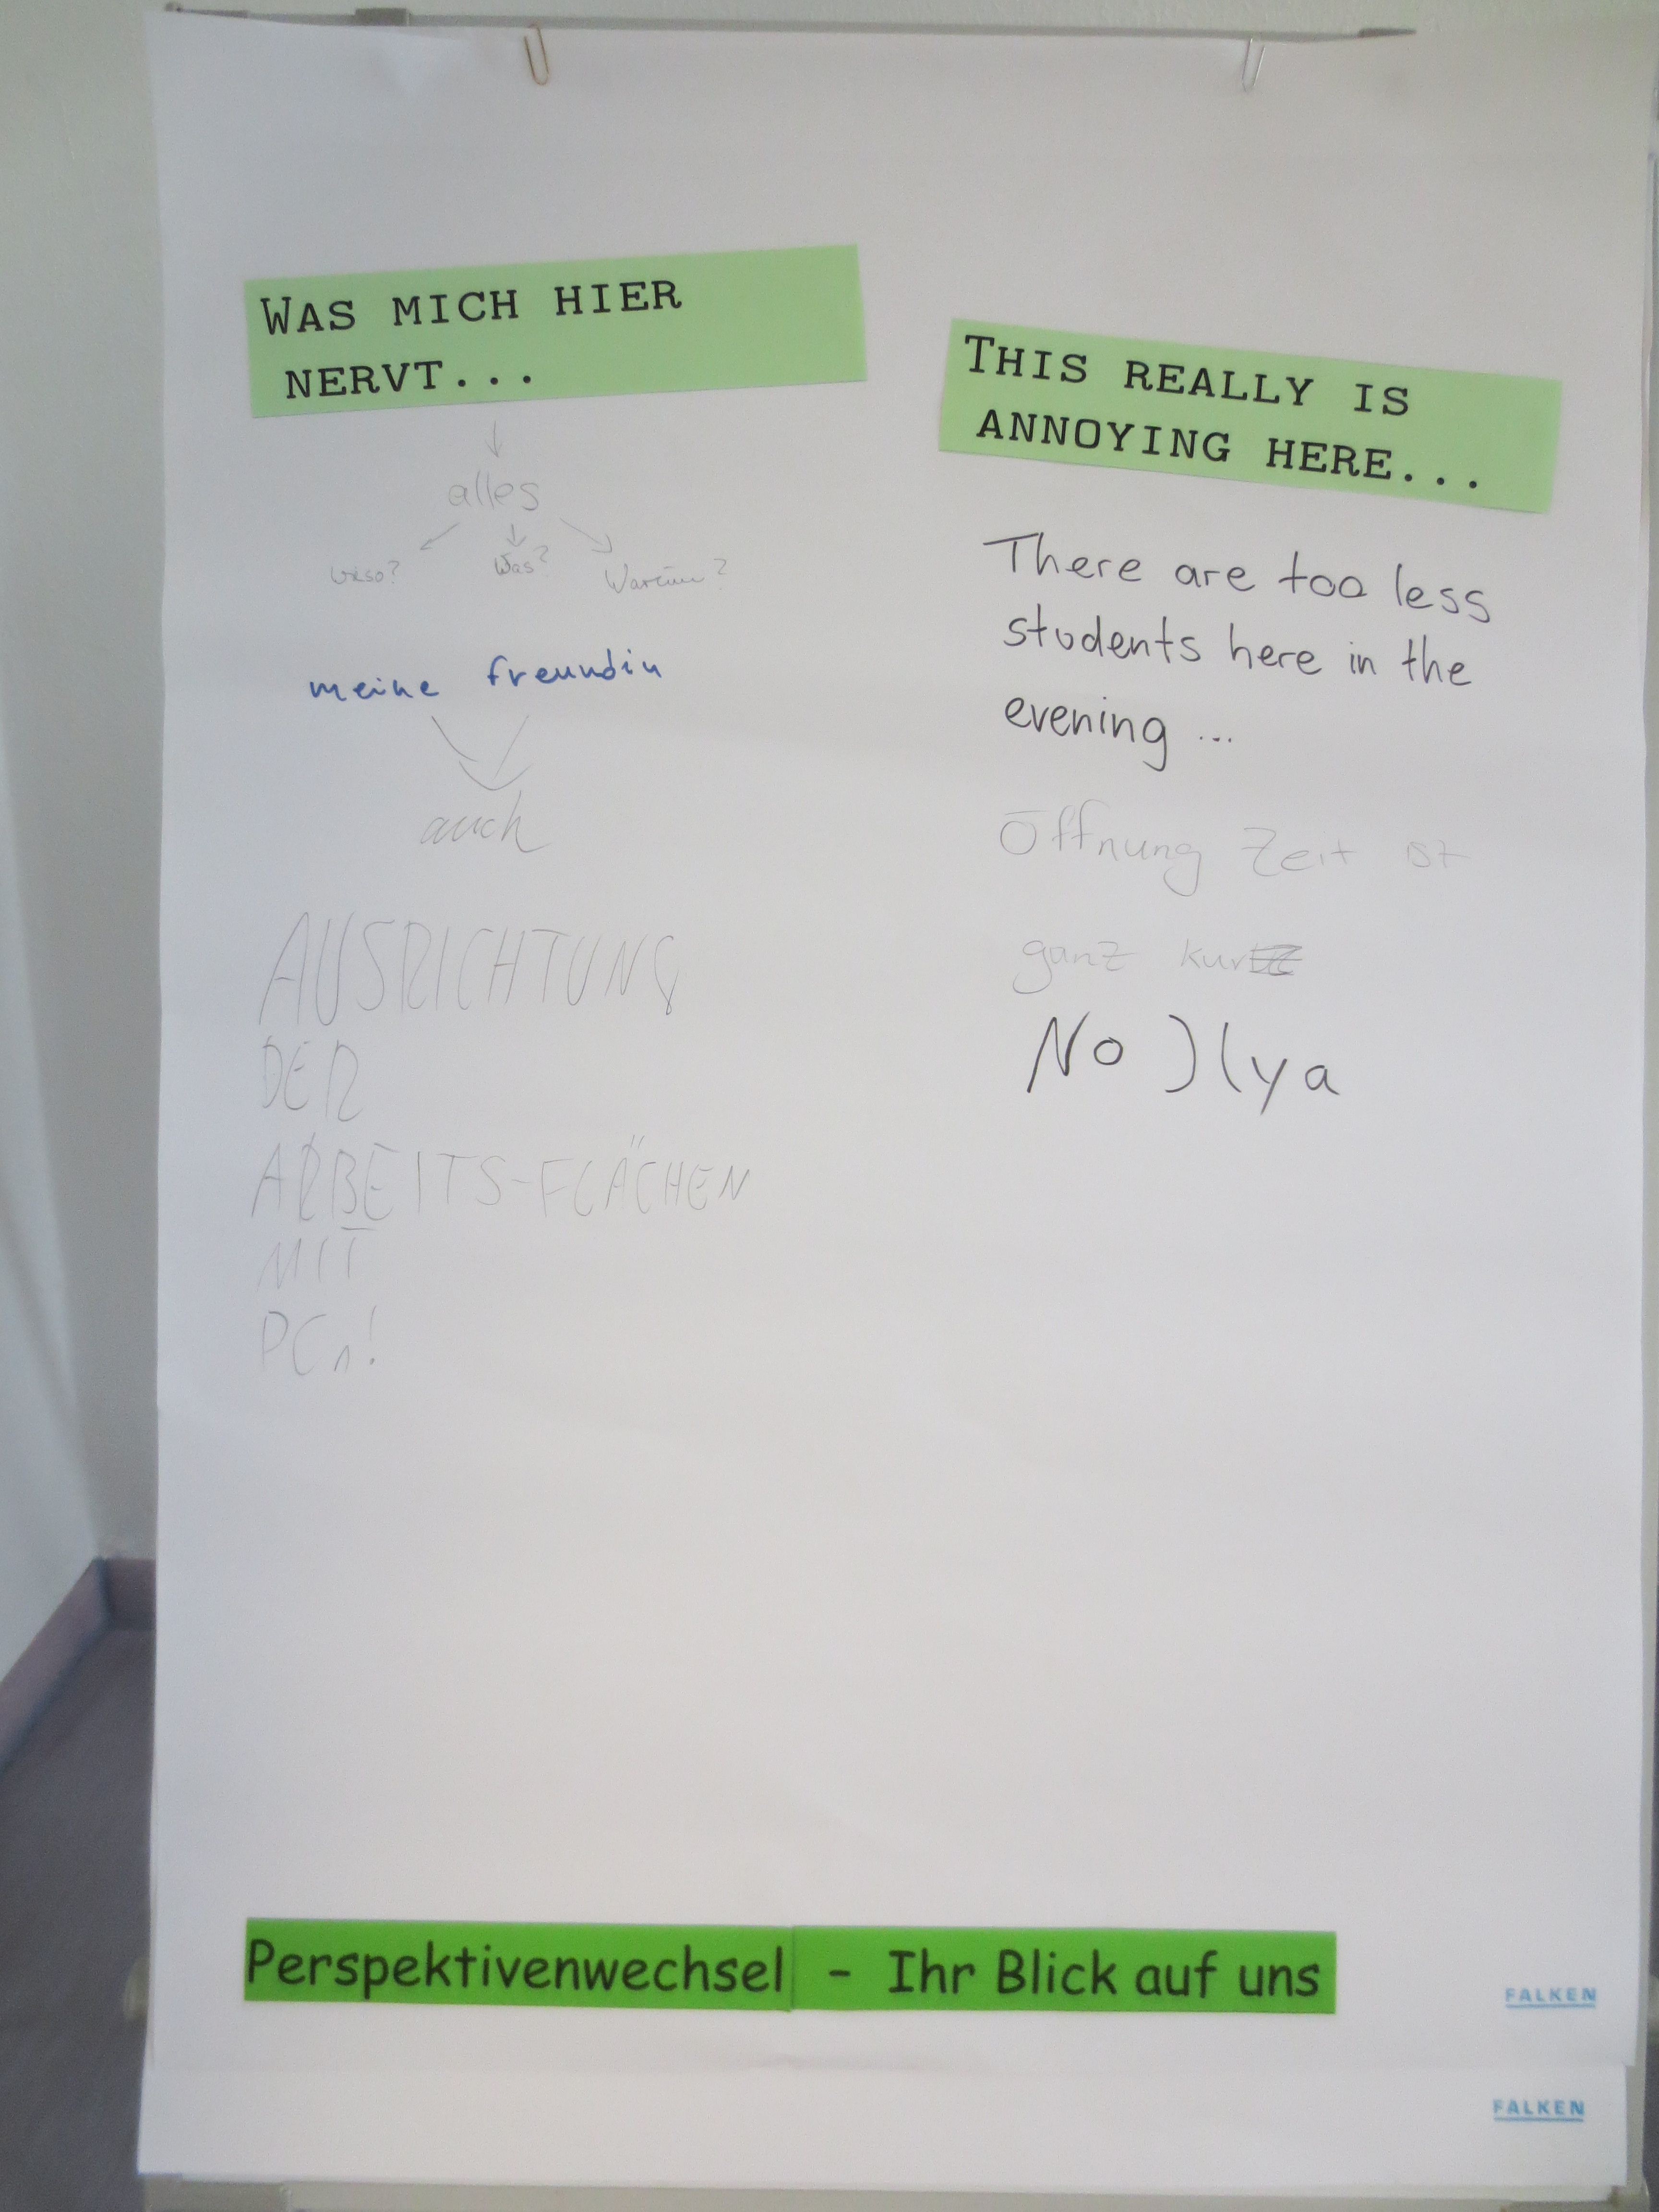 WAS MICH HIER
NERVT...
alles
wieso? Was? Warum?
meine freundin
auch
AUSRICHTUNG
DER
ARBEITS-FLÄCHEN
MIT
PCn!
THIS REALLY IS
ANNOYING HERE...
There are too less
students here in the
evening ...
Öffnung Zeit ist
ganz kurz
No Ilya
Perspektivenwechsel - Ihr Blick auf uns
FALKEN
FALKEN